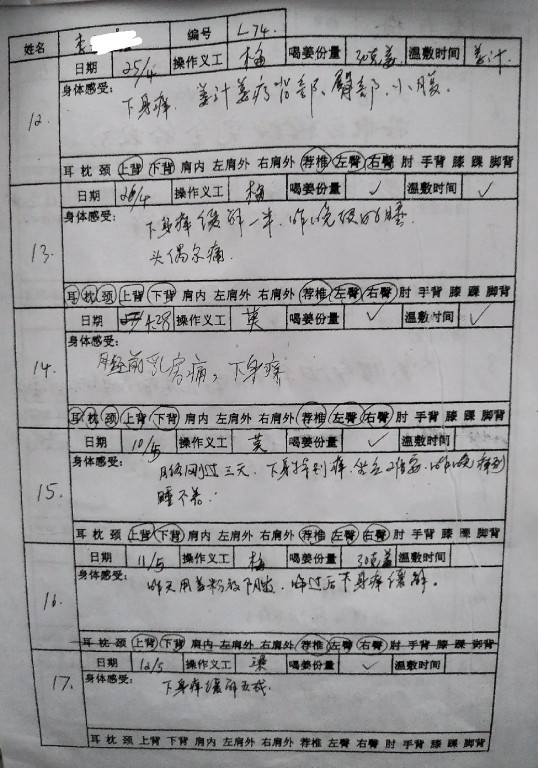 姓名 李 编号 L74.
日期 25/4 操作义工 梅 喝姜份量 30克姜 温敷时间 姜汁
12.
身体感受:
下身痒. 姜汁姜疗背部、臀部、小腹。
耳 枕 颈 上背 下背 肩内 左肩外 右肩外 荐椎 左臀 右臀 肘 手背 膝 踝 脚背
日期 26/4 操作义工 梅 喝姜份量 ✓ 温敷时间 ✓
13.
身体感受:
下身痒缓解一半. 昨晚
头偶尔痛.
耳 枕 颈 上背 下背 肩内 左肩外 右肩外 荐椎 左臀 右臀 肘 手背 膝 踝 脚背
日期 4.28 操作义工 莫 喝姜份量 ✓ 温敷时间 ✓
14.
身体感受:
月经前乳房痛, 下身痒
耳 枕 颈 上背 下背 肩内 左肩外 右肩外 荐椎 左臀 右臀 肘 手背 膝 踝 脚背
日期 10/5 操作义工 莫 喝姜份量 ✓ 温敷时间
15.
身体感受:
月经刚过三天. 下身特别痒. 坐立难安.
睡不着.
耳 枕 颈 上背 下背 肩内 左肩外 右肩外 荐椎 左臀 右臀 肘 手背 膝 踝 脚背
日期 11/5 操作义工 梅 喝姜份量 30克姜 温敷时间
16.
身体感受:
昨天用姜粉敷下阴处. 下身痒缓解.
耳 枕 颈 上背 下背 肩内 左肩外 右肩外 荐椎 左臀 右臀 肘 手背 膝 踝 脚背
日期 12/5 操作义工 梁 喝姜份量 ✓ 温敷时间
17.
身体感受:
下身痒缓解五成.
耳 枕 颈 上背 下背 肩内 左肩外 右肩外 荐椎 左臀 右臀 肘 手背 膝 踝 脚背